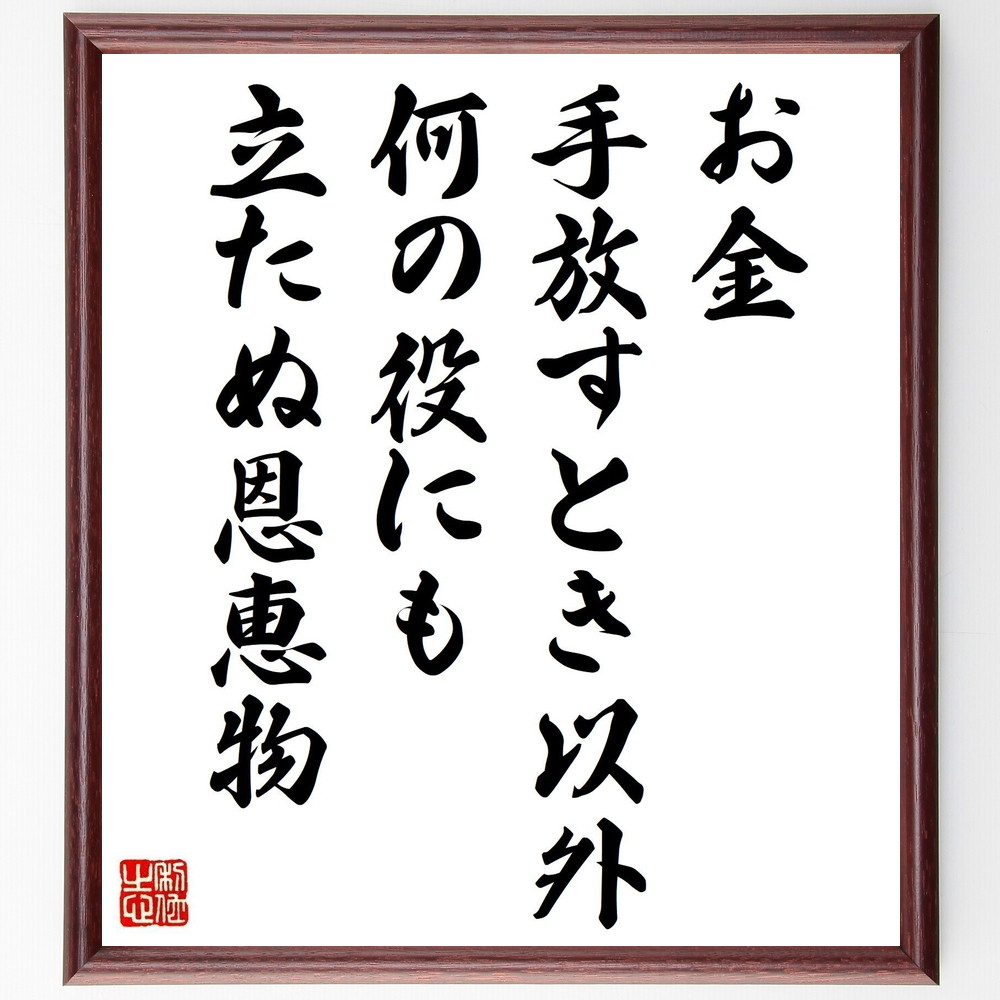 お金
手放すとき以外
何の役にも
立たぬ恩恵物